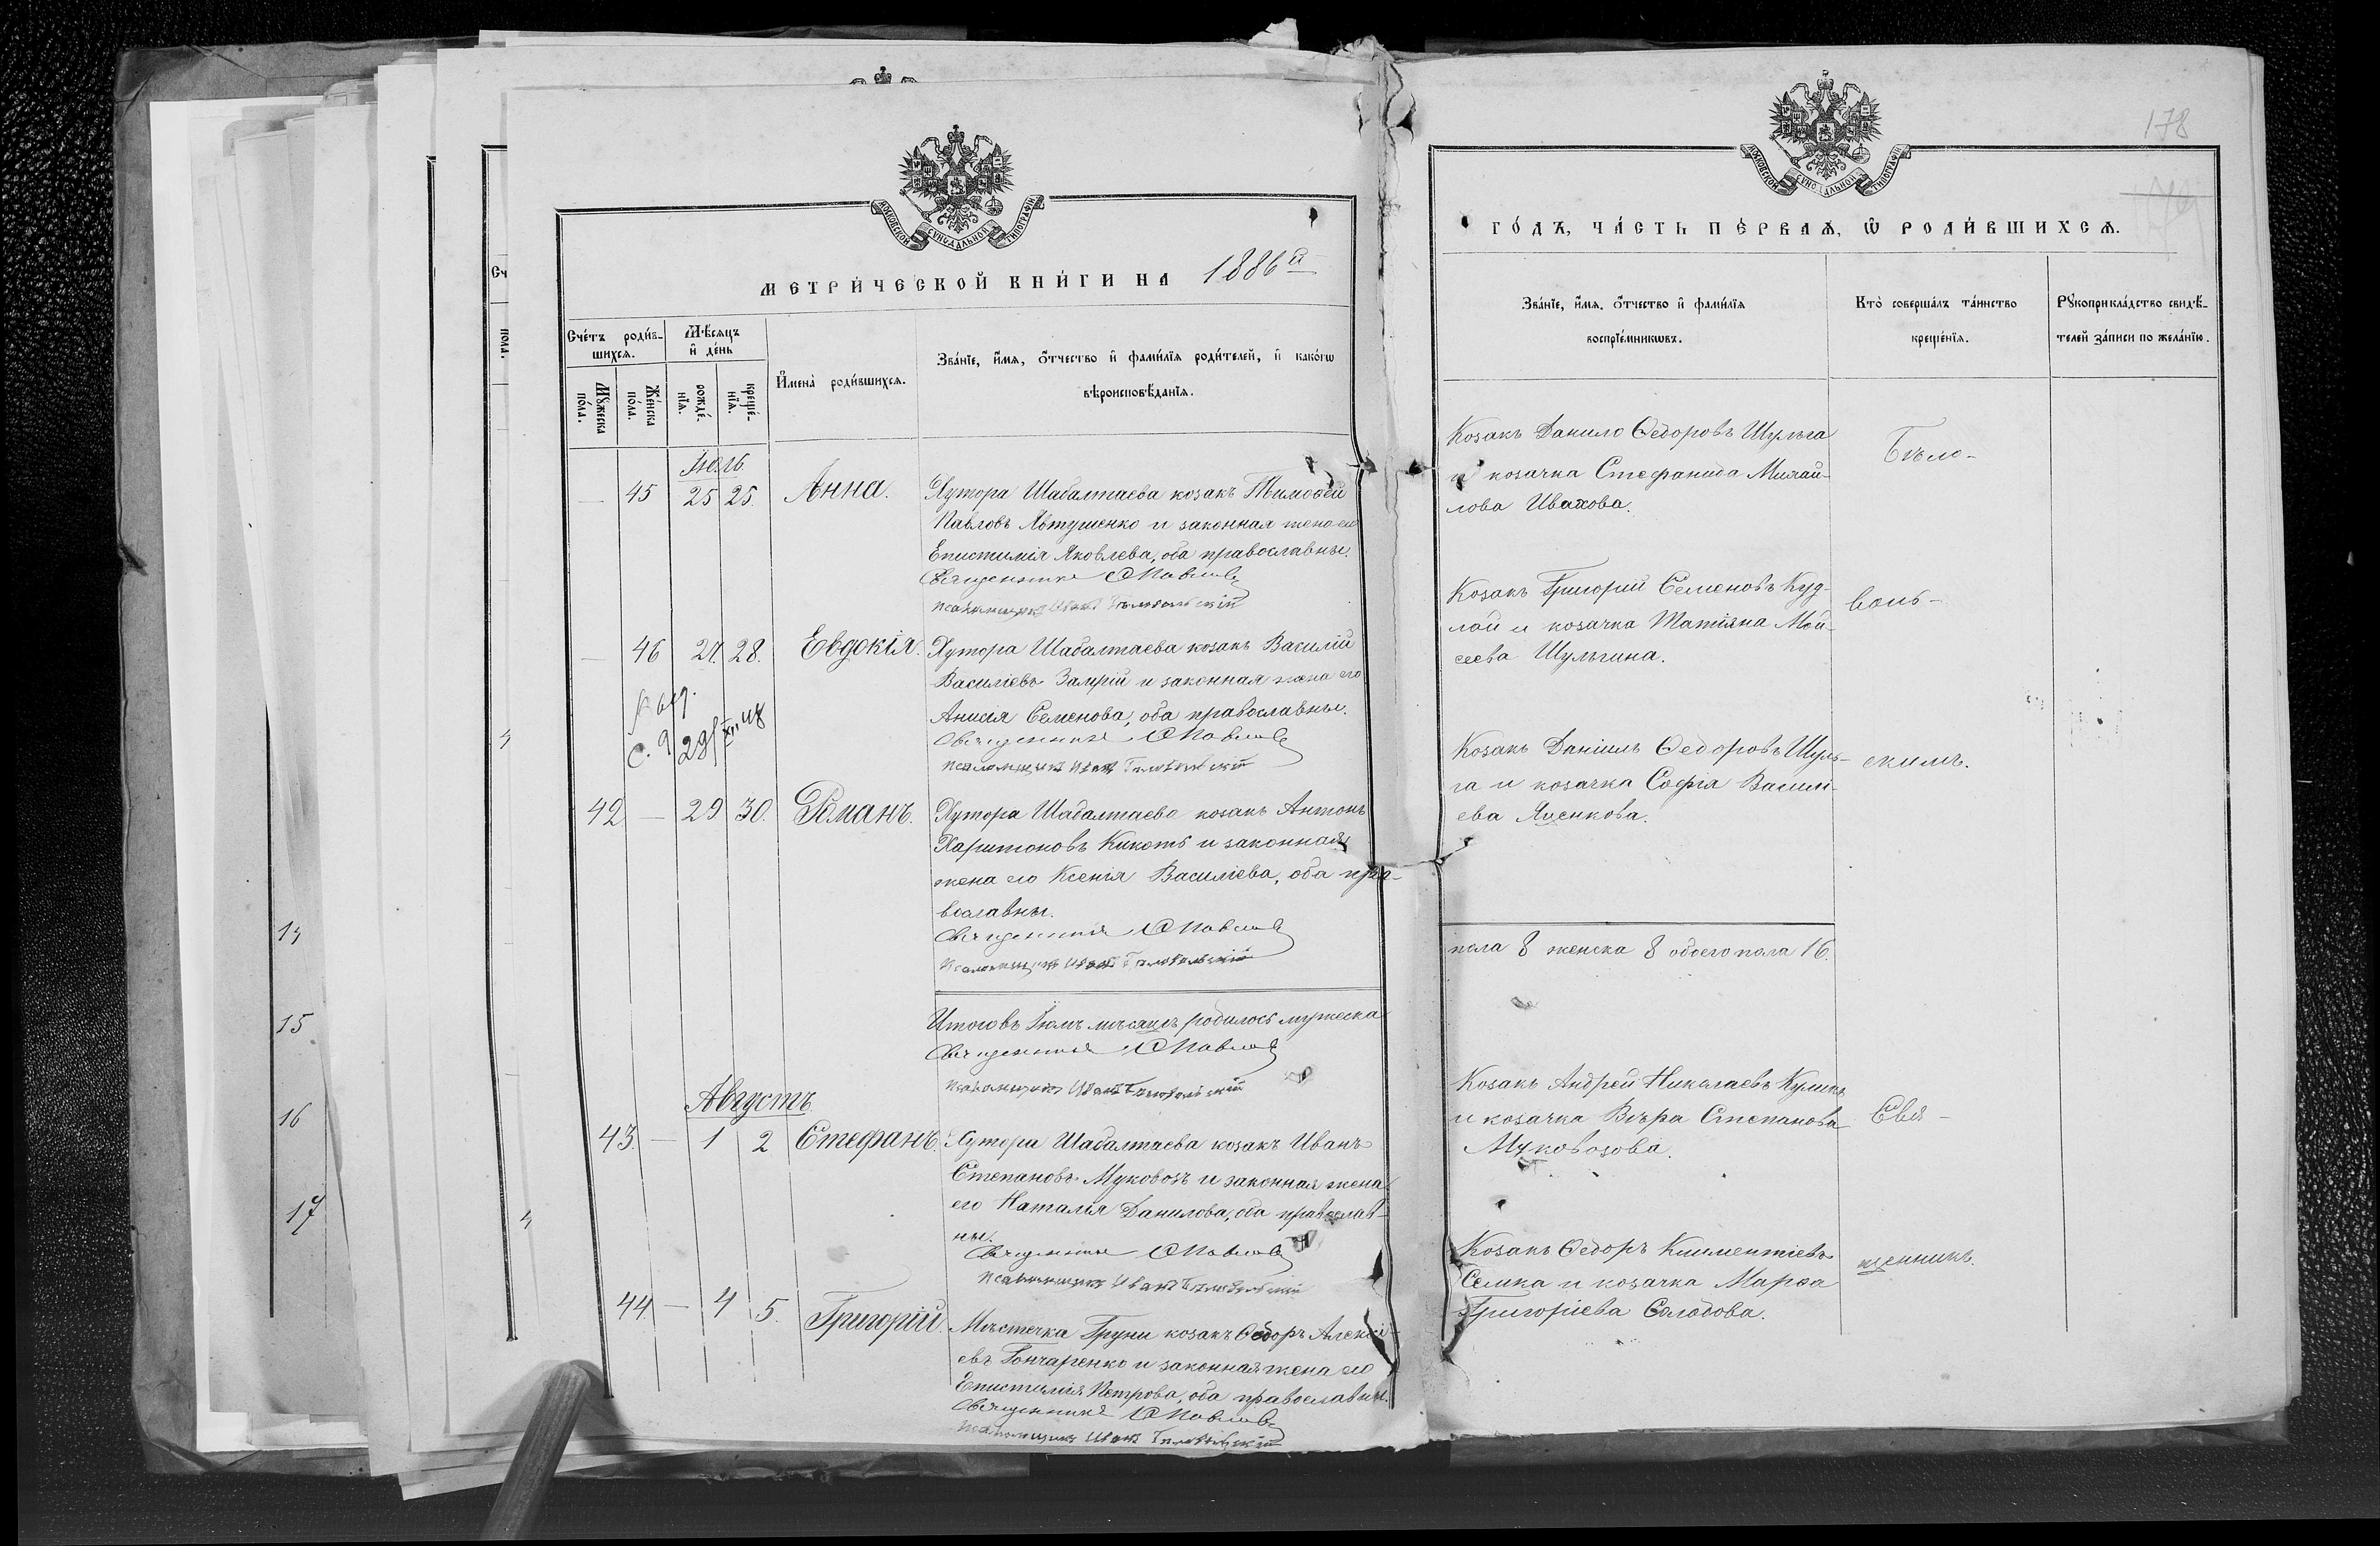 МОСКОВСКОЙ СѴНОДАЛЬНОЙ ТИПОГРАФІИ
МЕТРИ́ЧЕСКОЙ КНИ́ГИ НА 1886 й
Сче́тъ роди́в-
шихся.
Мѣ́сяцъ
и҆ де́нь
Имена̀ роди́вшихся.
Зва́нїе, и҆́мя, ѻ҆́тчество и҆ фами́лїя роди́телей, и҆ како́гѡ
вѣроисповѣ́данїя.
Мꙋ́жеска
по́ла.
Же́нска
по́ла.
рожде́-
нїя.
креще́-
нїя.
Іюль
— 45 25 25. Анна. Хутора Шабалтаева козакъ Тимоѳей
Павловъ Явтушенко и законная жена его
Епистимія Яковлева, оба православны.
Священникъ С Павловъ
Псаломщикъ Иванъ
— 46 27. 28. Евдокія. Хутора Шабалтаева козакъ Василій
Василіевъ Замрій и законная жена его
Анисія Семенова, оба православны.
с. 9 29/XII 48
Священникъ С Павловъ
Псаломщикъ Иванъ
42 — 29 30. Романъ. Хутора Шабалтаева козакъ Антонъ
Харитоновъ Кикоть и законная
жена его Ксенія Василіева, оба пра-
вославны.
Священникъ С Павловъ
Псаломщикъ Иванъ
Итого въ Іюлѣ мѣсяцѣ родилось мужеска
Священникъ С Павловъ
Псаломщикъ Иванъ
Августъ
43. — 1 2 Стефанъ. Хутора Шабалтаева козакъ Иванъ
Степановъ Муковозъ и законная жена
его Наталья Данилова, оба православ-
ны.
Священникъ С Павловъ
Псаломщикъ Иванъ
44 — 4 5. Григорій. Мѣстечка Груни козакъ Ѳедоръ Алексі-
евъ Гончаренко и законная жена его
Епистимія Петрова, оба православны.
Священникъ С Павловъ
Псаломщикъ Иванъ
178
МОСКОВСКОЙ СѴНОДАЛЬНОЙ ТИПОГРАФІИ
ГО́ДЪ, ЧА́СТЬ ПЕ́РВАЯ, Ѽ РОДИ́ВШИХСЯ.
Зва́нїе, и҆́мя, ѻ҆́тчество и҆ фами́лїя
воспрїе́мникѡвъ.
Кто̀ соверша́лъ та́инство
креще́нїя.
Рꙋкоприкла́дство свидѣ́-
телей за́писи по жела́нїю.
Козакъ Данило Ѳедоровъ Шульга
и козачка Стефанида Михай-
лова Ивахова.
Бѣло-
Козакъ Григорій Семеновъ Куд-
лай и козачка Татіяна Мой-
сеева Шульгина.
воль-
Козакъ Даніилъ Ѳедоровъ Шуль-
га и козачка Софія Василі-
ева Яценкова.
скимъ.
пола 8 женска 8 обоего пола 16.
Козакъ Андрей Николаевъ Куликъ
и козачка Вѣра Степанова
Муковозова.
Свя-
Козакъ Ѳедоръ Климентіевъ
Семка и козачка Марѳа
Григоріева Солодова.
щенникъ.
15
16
17